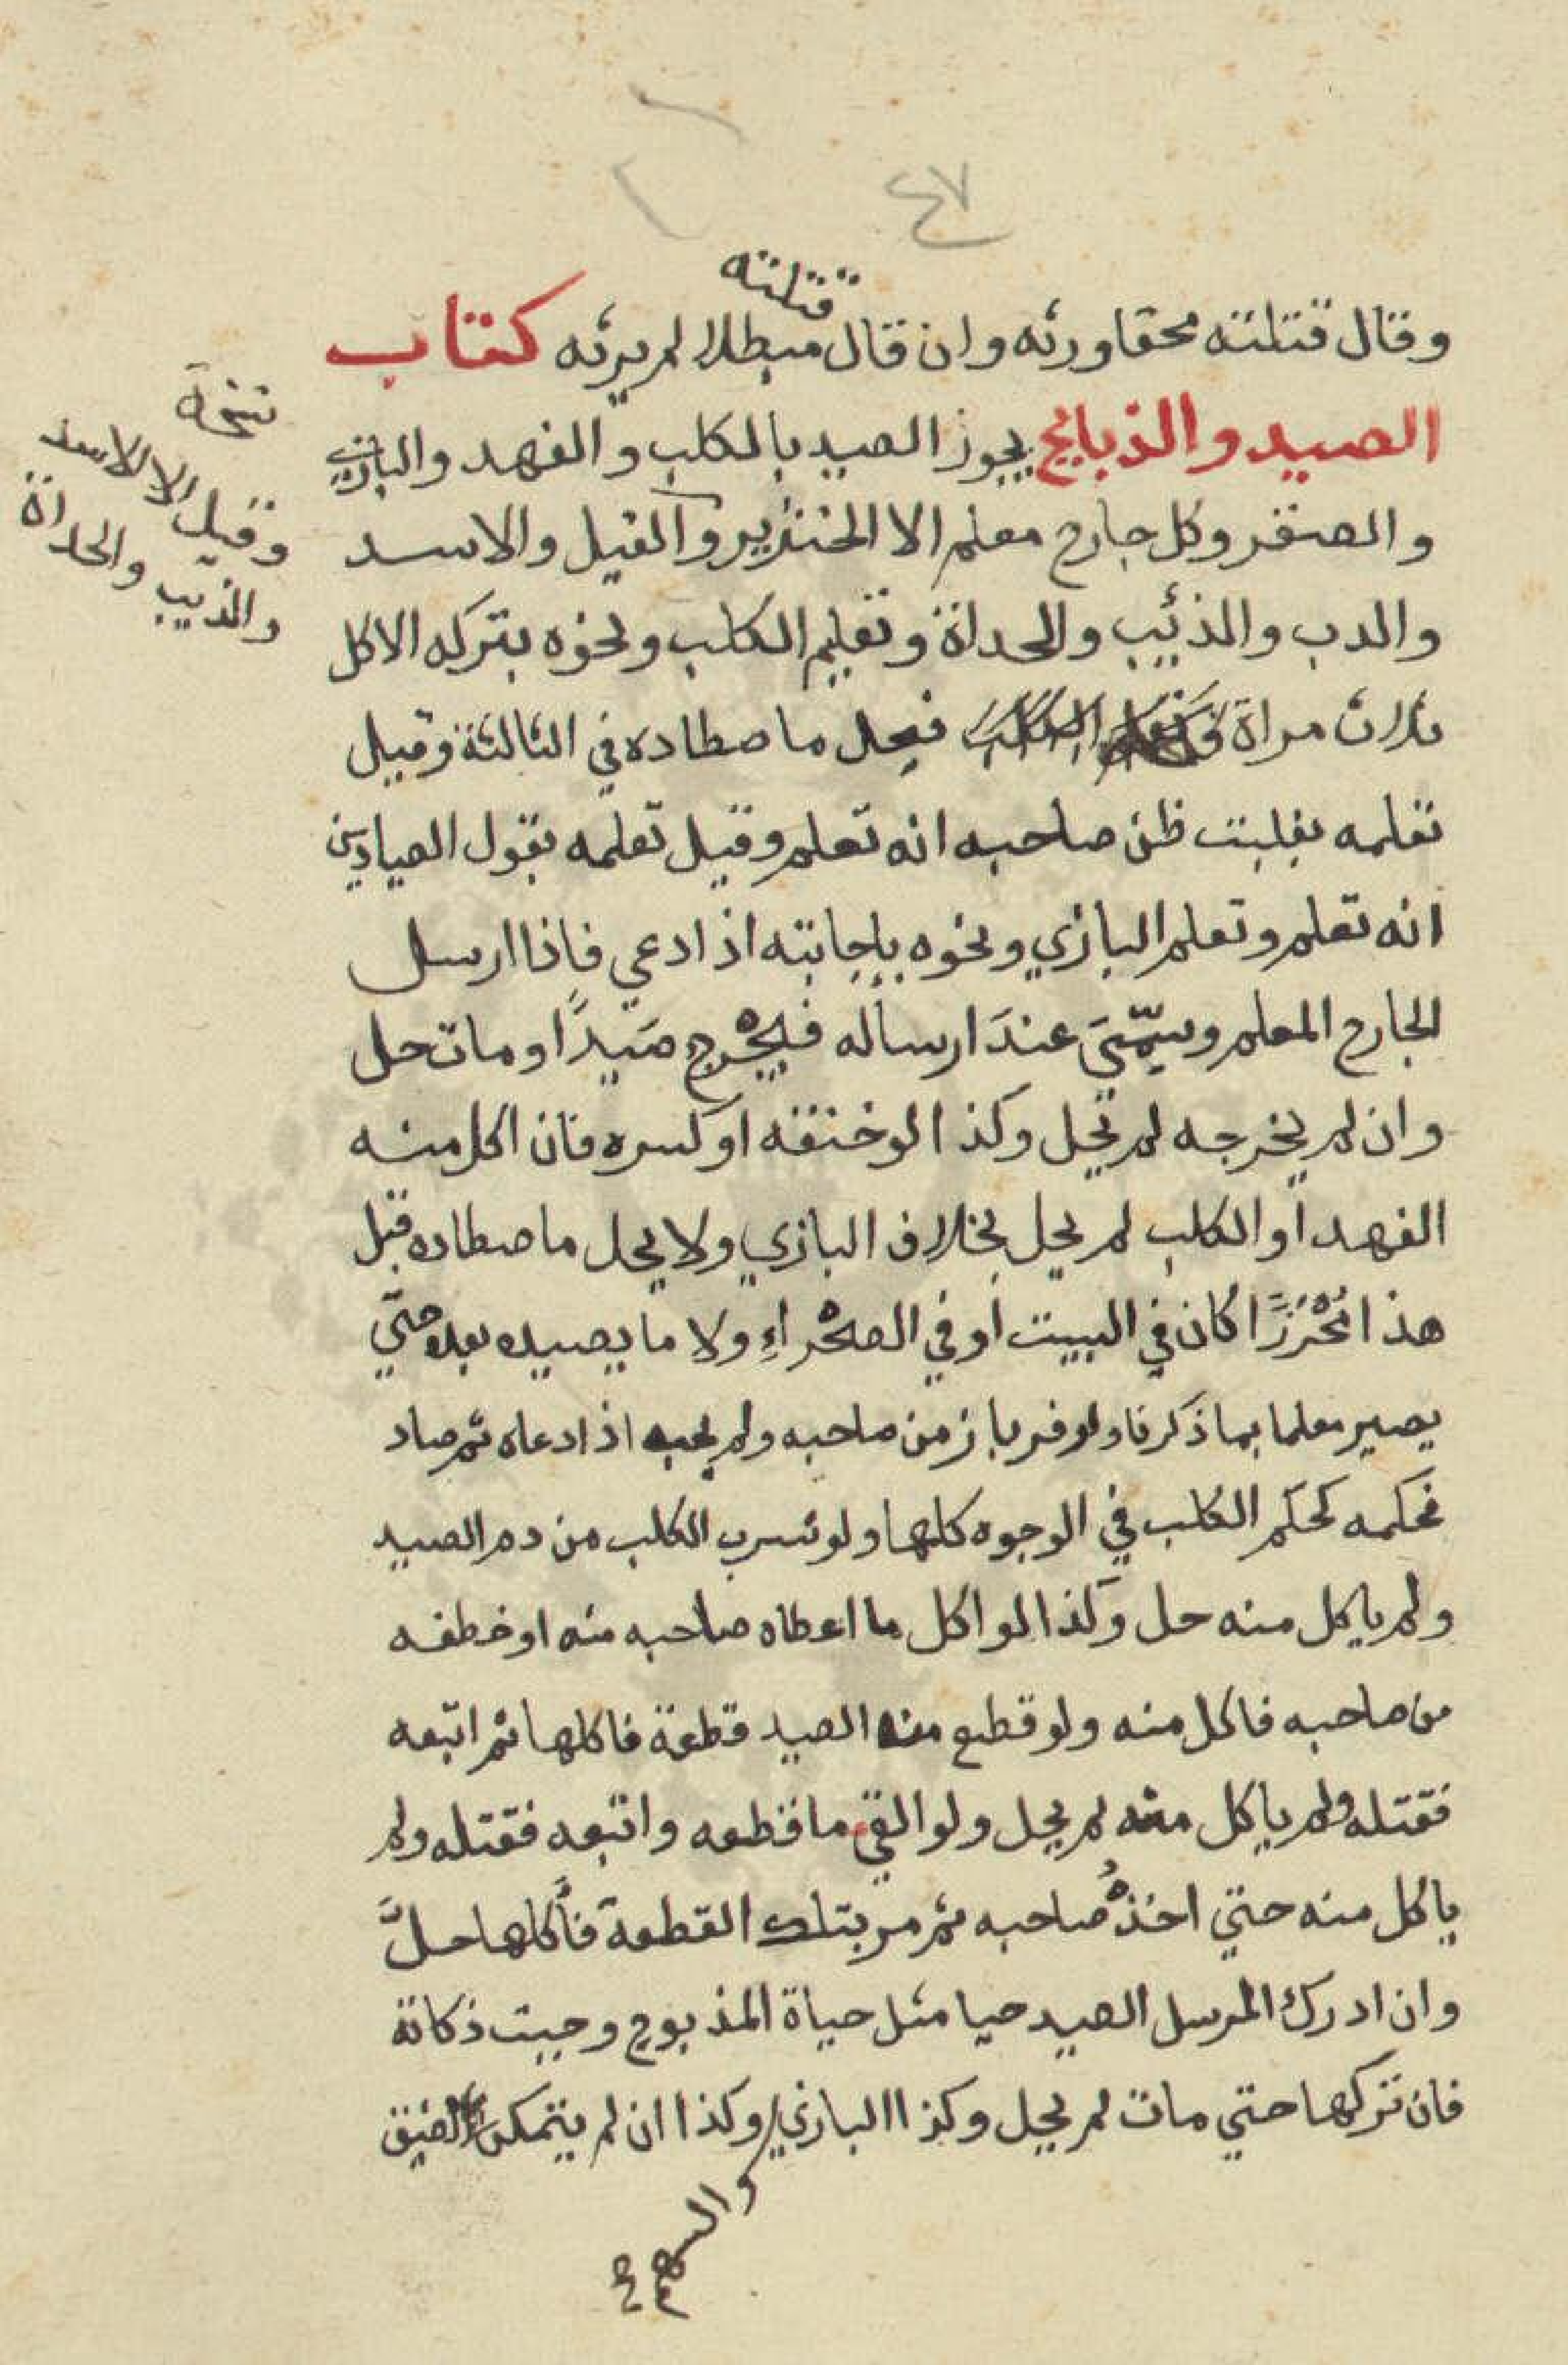 ٤٧
وقال قتلته محقا ورثه وان قال قتلته مبطلا لم يرثه كتاب
الصيد والذبايح يجوز الصيد بالكلب والفهد والبازي
والصقر وكل جارح معلم الا الخنزير والفيل والاسد
والدب والذئب والحداة وتعليم الكلب ونحوه بتركه الاكل
ثلاث مراة فيحل ماصطاده في الثالثة وقيل
تعلمه بغلبت ظن صاحبه انه تعلم وقيل تعلمه بقول الصيادين
انه تعلم وتعلم البازي ونحوه بإجابته اذادعي فاذا ارسل
الجارح المعلم وسمّيَ عندَ ارساله فيجْرح صَيداً او مات حل
وان لم يخرجه لم يحل وكذا لوخنقه او كسره فان اكل منه
الفهد او الكلب لم يحل بخلاف البازي ولا يحل ماصطاده قبل
هذا مُحْرَزًا كان في البيت او في الصحْراءِ ولا ما يصيده بعده حتّي
يصير معلما بما ذكرنا ولو فر باز من صاحبه ولم يجبه اذادعاه ثم صاد
فحكمه كحكم الكلب في الوجوه كلها ولو شرب الكلب من دم الصيد
ولم ياكل منه حل وكذا لو اكل ما اعطاه صاحبه منه او خطفه
من صاحبه فاكل منه ولو قطع منه الصيد قطعة فاكلها ثم اتبعه
فقتله ولم ياكل منه لم يحل ولو القي ما قطعه واتبعه فقتله ولم
ياكل منه حتي اخذهُ صاحبه ثم مر بتلك القطعة فأكلها حلَّ
وان ادرك المرسل الصيد حيا مثل حياة المذبوح وجبت ذكاتة
فان تركها حتي مات لم يحل وكذا البازي وكذا ان لم يتمكن لضيق
والسهم
نسخة
وقيل الا الاسد
والذيب والحداة